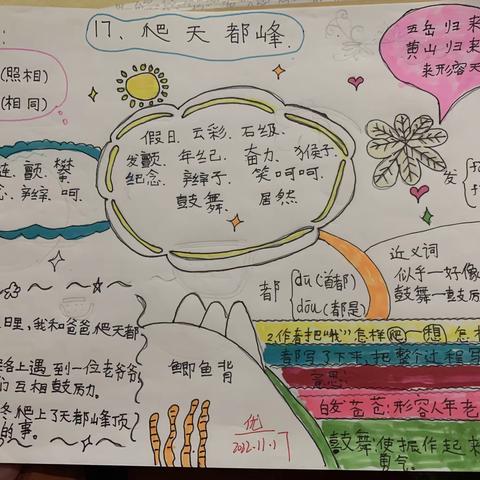 17、爬天都峰.
(照相)
(相同)
五岳归来
黄山归来
来形容天
假日、云彩、石级、
发颤、年纪、奋力、猴子、
纪念、辫子、笑呵呵、
鼓舞、居然
链、颤、攀
念、辫、呵、
发
都
dū(首都)
dōu(都是)
近义词
似乎—好像
鼓舞—鼓励
日里,我和爸爸爬天都
路上遇到一位老爷爷
们互相鼓励。
爬上了天都峰顶
的事。
鲫鱼背
优
2022.11.17
2.作者把"我"怎样爬—想怎
都写了下来,把整个过程写
意思:
白发苍苍:形容人年老
鼓舞:使振作起来
勇气。